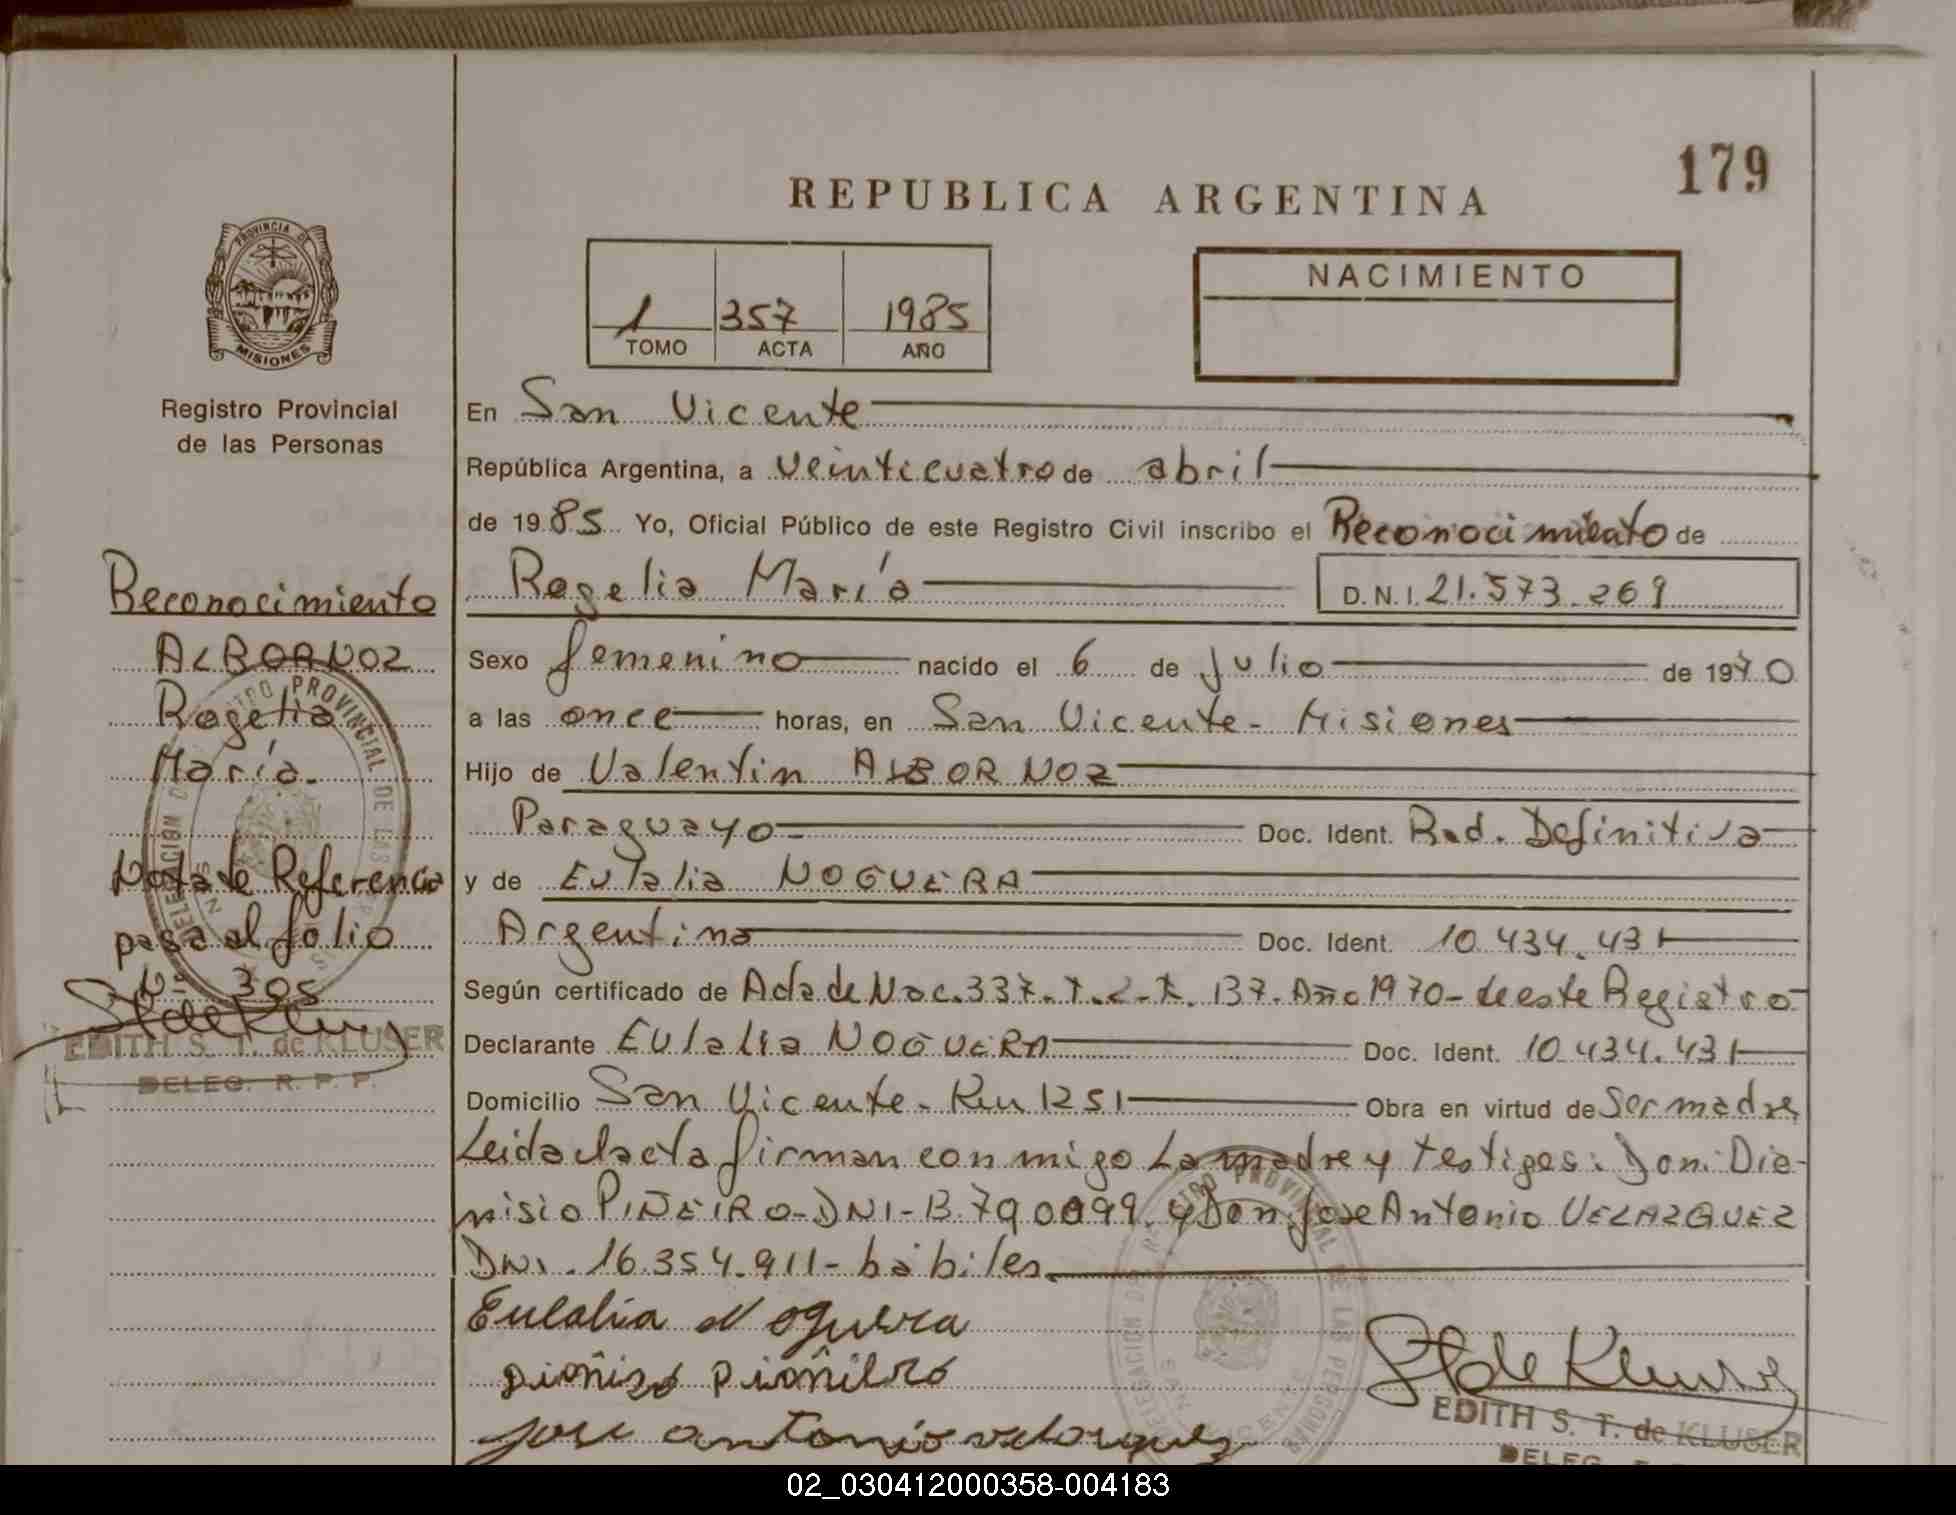 179
REPUBLICA ARGENTINA
PROVINCIA DE
MISIONES
Registro Provincial
de las Personas
1 357 1985
TOMO ACTA AÑO
NACIMIENTO
En San Vicente
República Argentina, a veinticuatro de abril
de 1985 Yo, Oficial Público de este Registro Civil inscribo el Reconocimiento de
Rogelia María D.N.I. 21.573.269
Sexo femenino nacido el 6 de Julio de 1970
a las once horas, en San Vicente - Misiones
Hijo de Valentin ALBORNOZ
Paraguayo Doc. Ident. Rad. Definitiva
y de Eulalia NOGUERA
Argentina Doc. Ident. 10.434.431
Según certificado de Acta de Nac. 337. T. 2- F. 137. Año 1970- de este Registro
Declarante Eulalia NOGUERA Doc. Ident. 10.434.431
Domicilio San Vicente - Km 1251 Obra en virtud de Ser madre
Leida el acta firman con migo La madre y testigos: Don: Dio-
nisio PIÑEIRO - DNI - 13.790099. y Don Jose Antonio VELAZQUEZ
DNI. 16.354.911 - hábiles.
Eulalia Noguera
Jose antonio velazquez
EDITH S. T. de KLUSER
DELEG.
Reconocimiento
ALBORNOZ
Rogelia
María.
Nota de Referencia
pasa al folio
Nº 305
EDITH S. T. de KLUSER
DELEG. R. P. P.
DELEGACION DEL REGISTRO PROVINCIAL DE LAS PERSONAS
SAN VICENTE
02_030412000358-004183